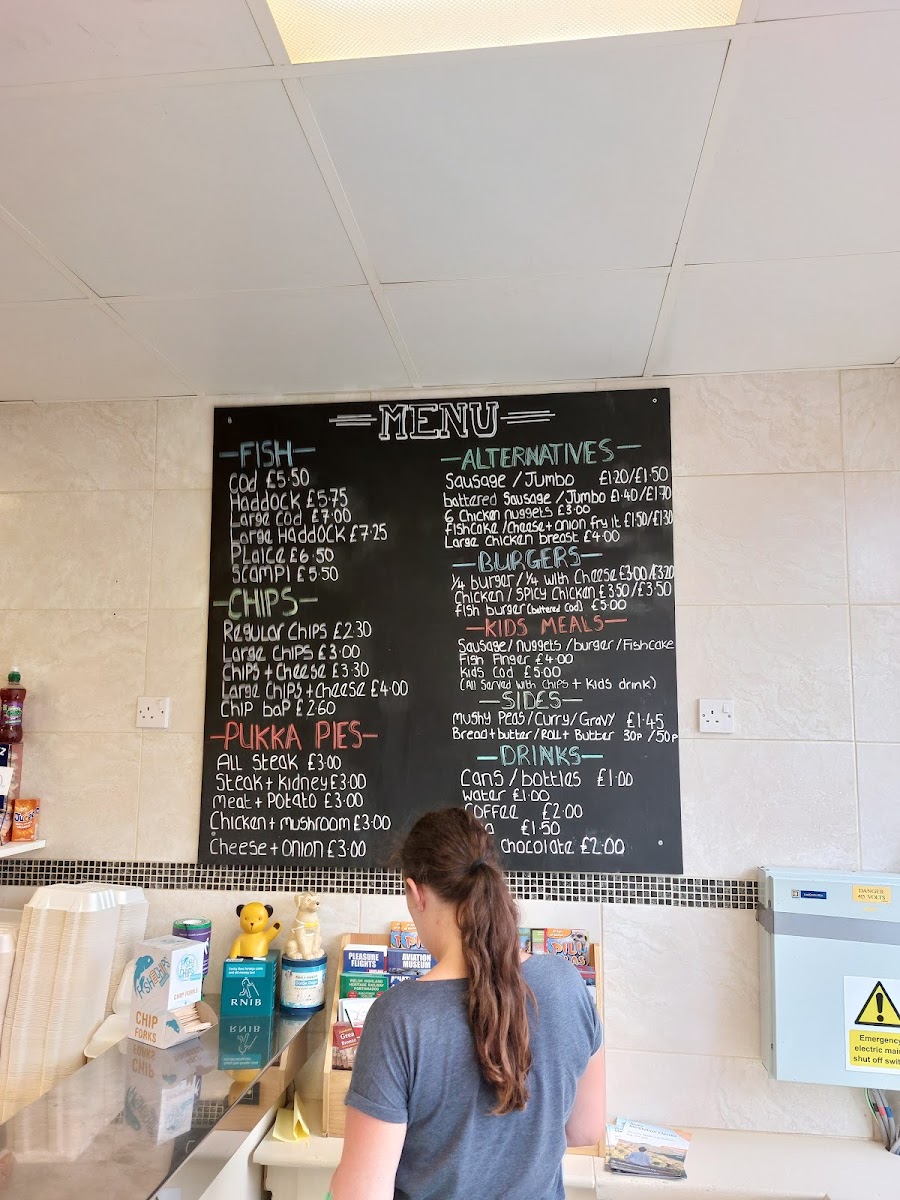 MENU
FISH
Cod £5.50
Haddock £5.75
Large Cod £7.00
Large Haddock £7.25
Plaice £6.50
Scampi £5.50
CHIPS
Regular Chips £2.30
Large Chips £3.00
Chips + Cheese £3.30
Large Chips + Cheese £4.00
Chip bap £2.60
PUKKA PIES
All Steak £3.00
Steak + Kidney £3.00
Meat + Potato £3.00
Chicken + mushroom £3.00
Cheese + Onion £3.00
ALTERNATIVES
Sausage / Jumbo £1.20/£1.50
battered Sausage / Jumbo £1.40/£1.70
6 Chicken nuggets £3.00
Fishcake /cheese + onion fry it £1.50/£1.30
Large Chicken breast £4.00
BURGERS
1/4 burger / 1/4 with Cheese £3.00/£3.20
Chicken / Spicy Chicken £3.50/£3.50
fish burger (battered Cod) £5.00
KIDS MEALS
Sausage/ nuggets / burger / Fishcake
Fish Finger £4.00
Kids Cod £5.00
(All Served with Chips + Kids drink)
SIDES
Mushy Peas / Curry / Gravy £1.45
Bread + butter / Roll + Butter 30p / 50p
DRINKS
Cans / bottles £1.00
Water £1.00
COFFEE £2.00
£1.50
chocolate £2.00
CHIP
FORKS
RNIB
PLEASURE
FLIGHTS
AVIATION
MUSEUM
DANGER
415 VOLTS
Emergency
electric main
shut off swit